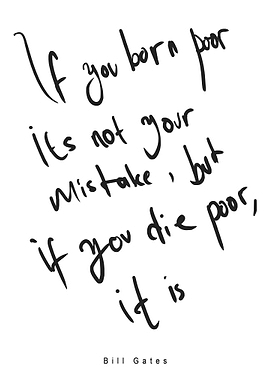 If you born poor
its not your
mistake, but
if you die poor,
it is
Bill Gates